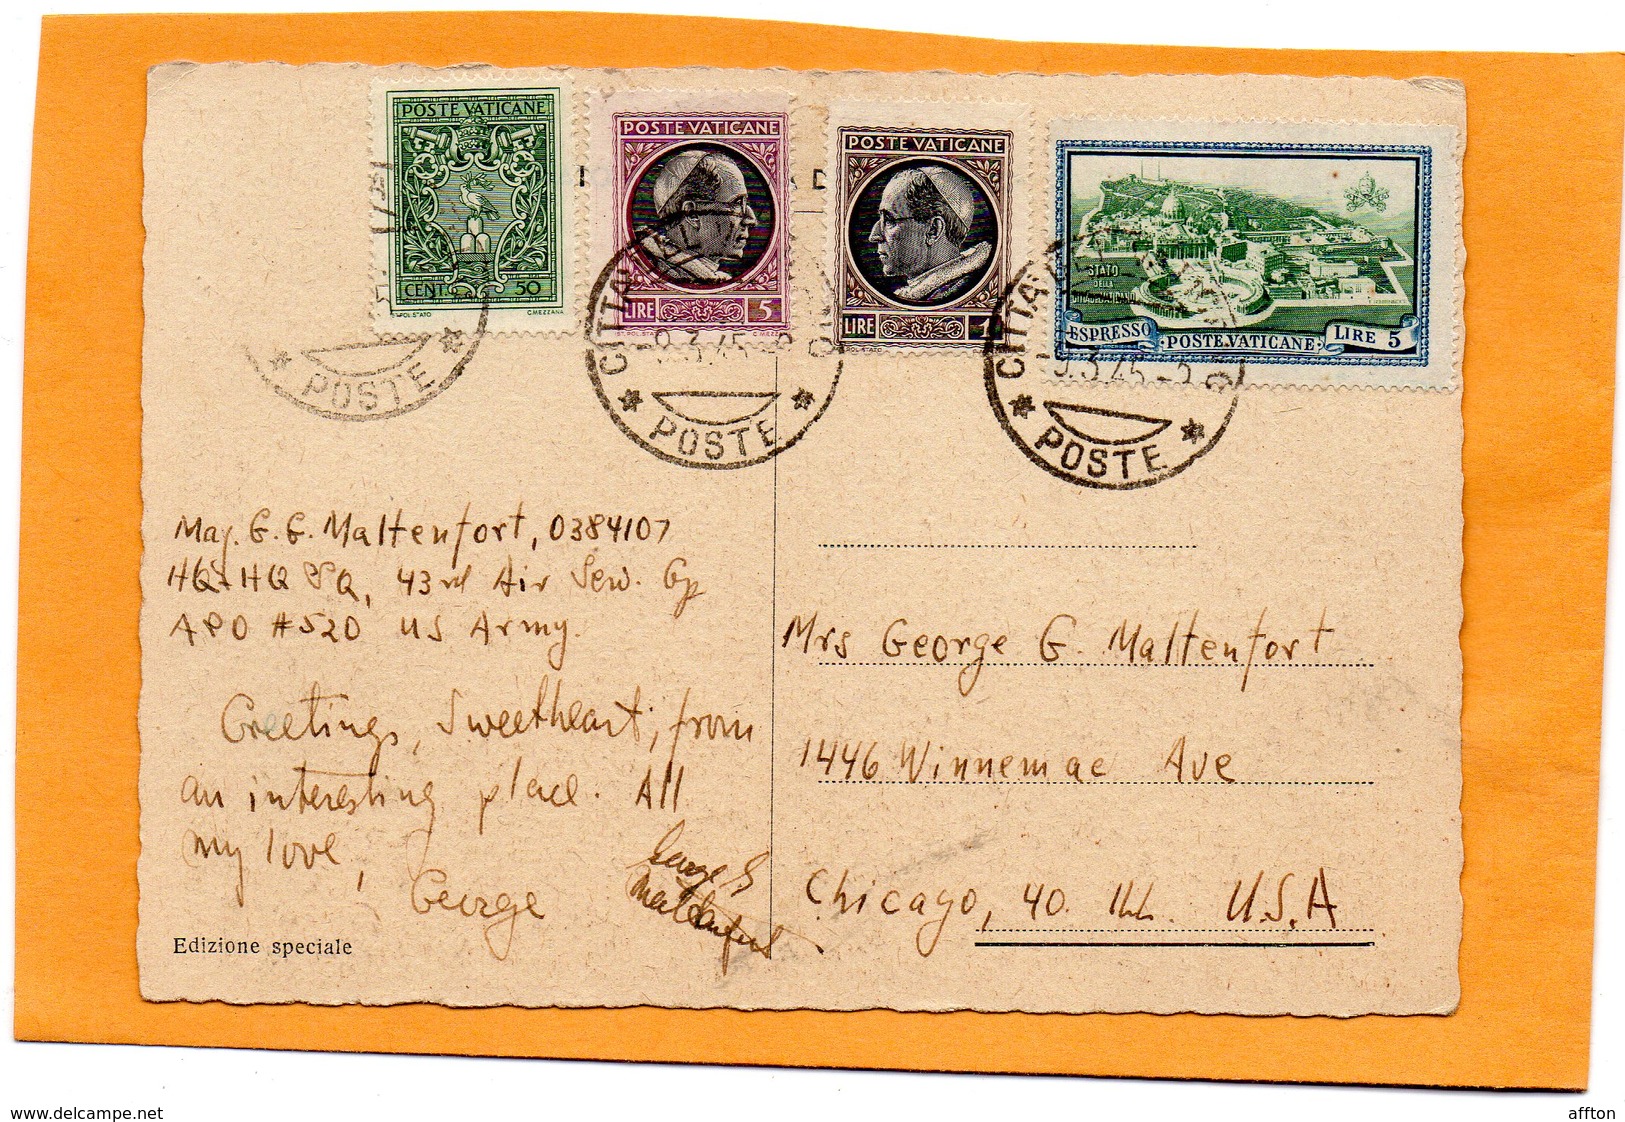 POSTE VATICANE
CENT. 50
POL. STATO C. MEZZANA
POSTE VATICANE
LIRE 5
POSTE VATICANE
LIRE 1
POL. STATO
STATO
DELLA
CITTÀ DEL VATICANO
ESPRESSO POSTE VATICANE LIRE 5
POSTE
CITTÀ
9.3.45
POSTE
CITTÀ
9.3.45
POSTE
Maj. G. G. Maltenfort, 0384107
HQ & HQ SQ, 43rd Air Serv. Gp
APO #520 US Army.
Greetings, Sweetheart, from
an interesting place. All
my love,
George
George G
Maltenfort
Edizione speciale
Mrs George G. Maltenfort
1446 Winnemac Ave
Chicago, 40. Ill. U.S.A
www.delcampe.net
affton